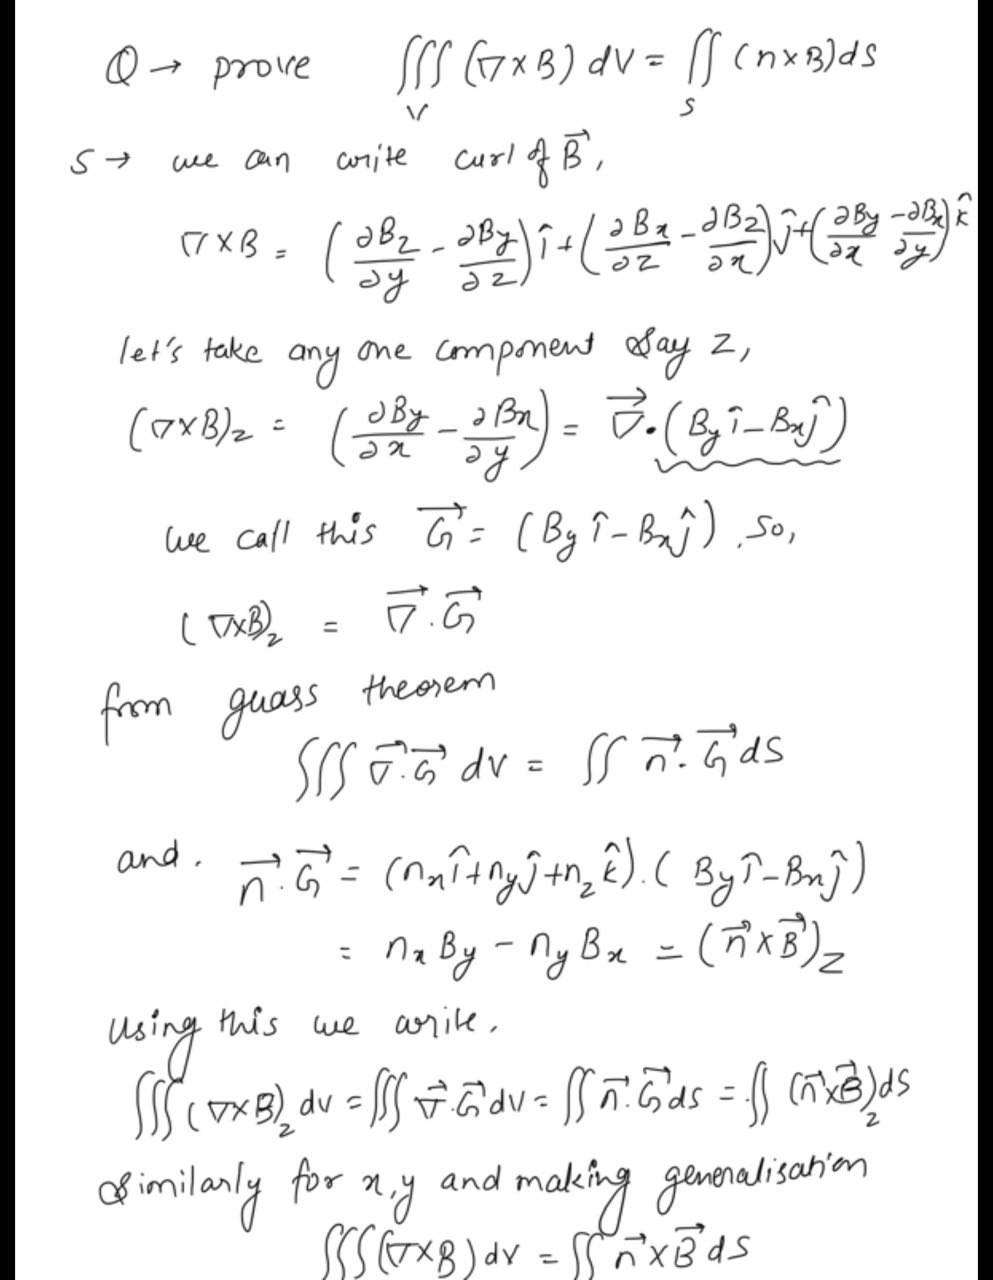 Q → prove ∭_V (∇×B) dV = ∬_S (n×B)dS
S → we can write curl of B⃗,
∇×B = (∂Bz/∂y - ∂By/∂z)î+(∂Bx/∂z - ∂Bz/∂x)ĵ+(∂By/∂x - ∂Bx/∂y)k̂
let's take any one component say z,
(∇×B)z = (∂By/∂x - ∂Bx/∂y) = ∇⃗.(By î - Bx ĵ)
we call this G⃗ = (By î - Bx ĵ). So,
(∇×B)z = ∇⃗.G⃗
from guass theorem
∭ ∇⃗.G⃗ dv = ∬ n⃗.G⃗ dS
and. n⃗.G⃗ = (nx î+ny ĵ+nz k̂).(By î - Bx ĵ)
= nx By - ny Bx = (n⃗×B⃗)z
using this we write.
∭(∇×B)z dv = ∭ ∇⃗.G⃗ dv = ∬ n⃗.G⃗ ds = ∬ (n⃗×B⃗)z dS
Similarly for x,y and making generalisation
∭(∇×B) dv = ∬ n⃗×B⃗ dS